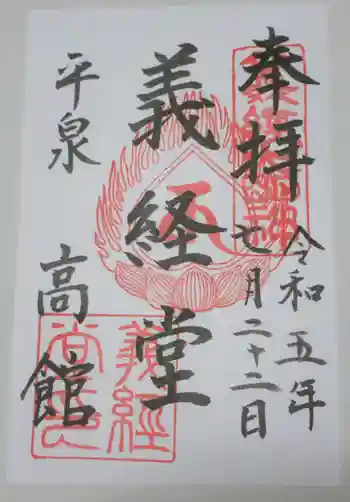 奉拝
令和五年
七月二十二日
義経堂
平泉
高館
義経